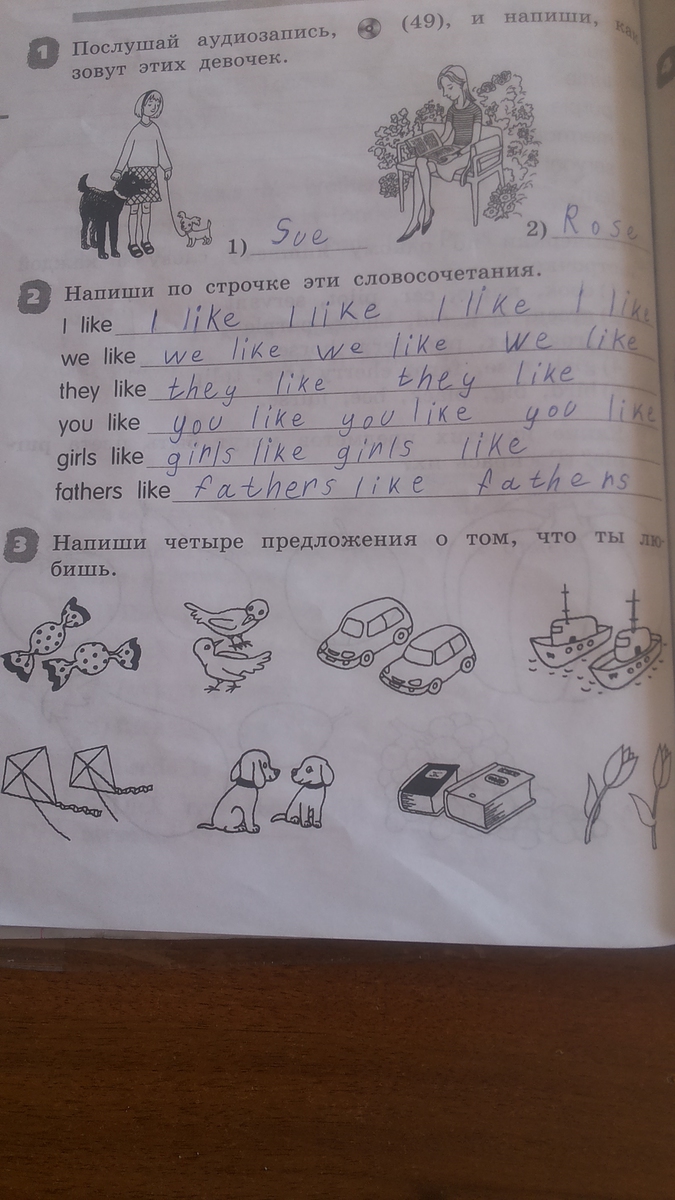 1 Послушай аудиозапись, (49), и напиши, как
зовут этих девочек.
1) Sue 2) Rose
2 Напиши по строчке эти словосочетания.
I like I like I like I like I like
we like we like we like we like
they like they like they like
you like you like you like you like
girls like girls like girls like
fathers like fathers like fathers
3 Напиши четыре предложения о том, что ты лю-
бишь.